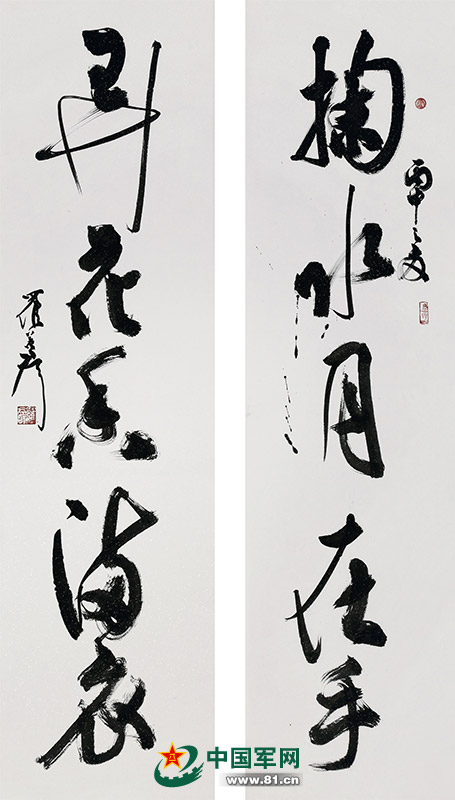 掬水月在手
丙申之夏
弄花香满衣
中国军网
www.81.cn